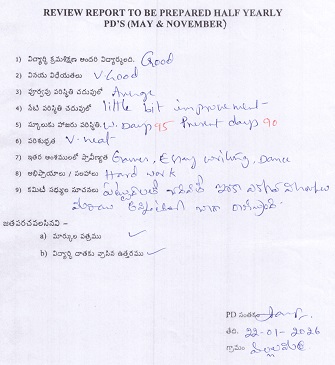 REVIEW REPORT TO BE PREPARED HALF YEARLY
PD'S (MAY & NOVEMBER)
1) విద్యార్థి క్రమశిక్షణ అందరి విద్యార్థులది. Good
2) వినయ విధేయతలు V Good
3) పూర్వపు పరిస్థితి చదువులో Average
4) నేటి పరిస్థితి చదువులో little bit improvement
5) స్కూలుకు హాజరు పరిస్థితి. W. Days 95 Present days 90
6) పరిశుభ్రత V. neat
7) ఇతర అంశములలో ప్రావీణ్యత Games, Essay writing, Dance
8) అభిప్రాయాలు / సలహాలు Hard work
9) కమిటీ సభ్యుల సూచనలు
జతపరచవలసినవి -
a) మార్కుల పత్రము ✓
b) విద్యార్థి దాతకు వ్రాసిన ఉత్తరము ✓
PD సంతకం
తేది. 22-01-2026
గ్రామం